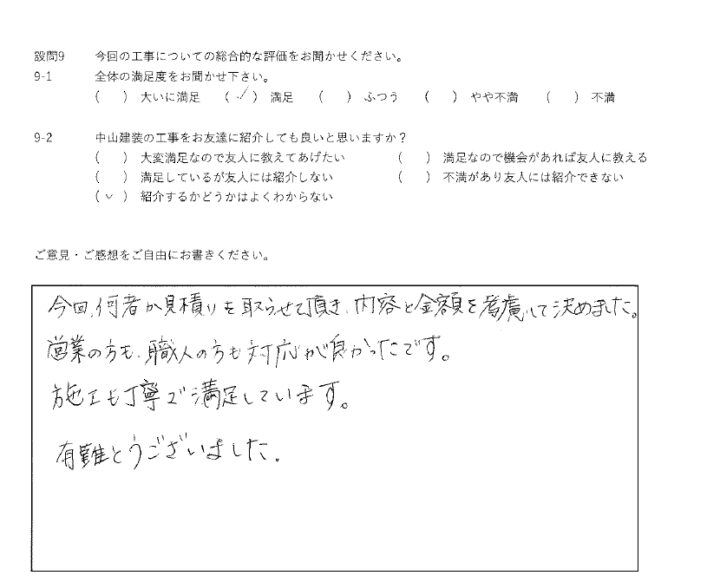 設問9 今回の工事についての総合的な評価をお聞かせください。
9-1 全体の満足度をお聞かせ下さい。
( ) 大いに満足 (✓) 満足 ( ) ふつう ( ) やや不満 ( ) 不満
9-2 中山建装の工事をお友達に紹介しても良いと思いますか？
( ) 大変満足なので友人に教えてあげたい ( ) 満足なので機会があれば友人に教える
( ) 満足しているが友人には紹介しない ( ) 不満があり友人には紹介できない
(✓) 紹介するかどうかはよくわからない
ご意見・ご感想をご自由にお書きください。
今回、何者か見積りを取らせて頂き、内容と金額を考慮して決めました。
営業の方も、職人の方も対応が良かったです。
施工も丁寧で満足しています。
有難とうございました.